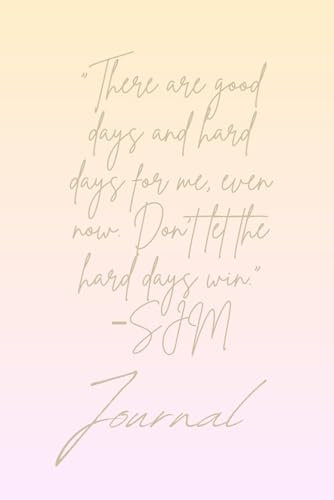 "There are good
days and hard
days for me, even
now. Don't let the
hard days win."
-SJM
Journal